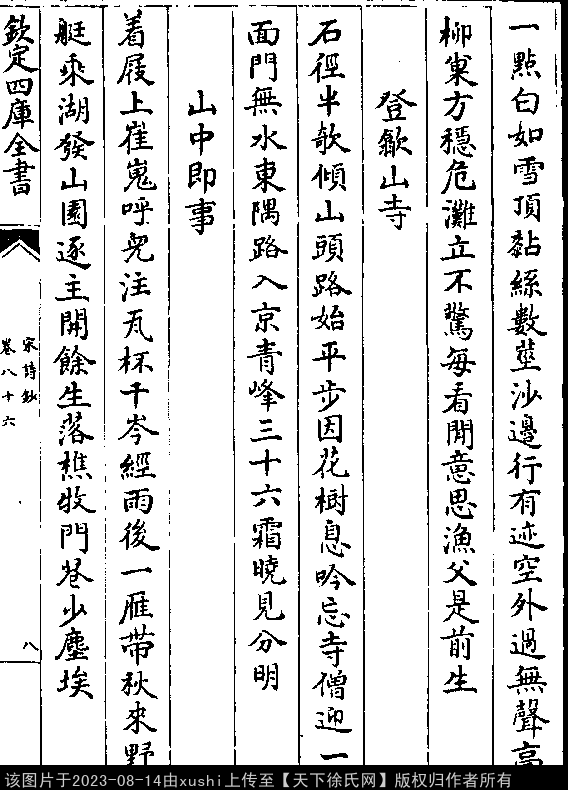 一點白如雪頂黏絲數莖沙邊行有迹空外過無聲高
柳東方穩危灘立不驚每看閒意思漁父是前生
登歙山寺
石徑半欹傾山頭路始平步因花樹息吟忘寺僧迎一
面門無水東隅路入京青峰三十六霜曉見分明
山中即事
着屐上崔嵬呼兒注瓦杯千岑經雨後一雁帶秋來野
艇乘湖發山園逐主開餘生落樵牧門巷少塵埃
宋詩鈔
卷八十六
八
欽定四庫全書
该图片于2023-08-14由xushi上传至【天下徐氏网】版权归作者所有